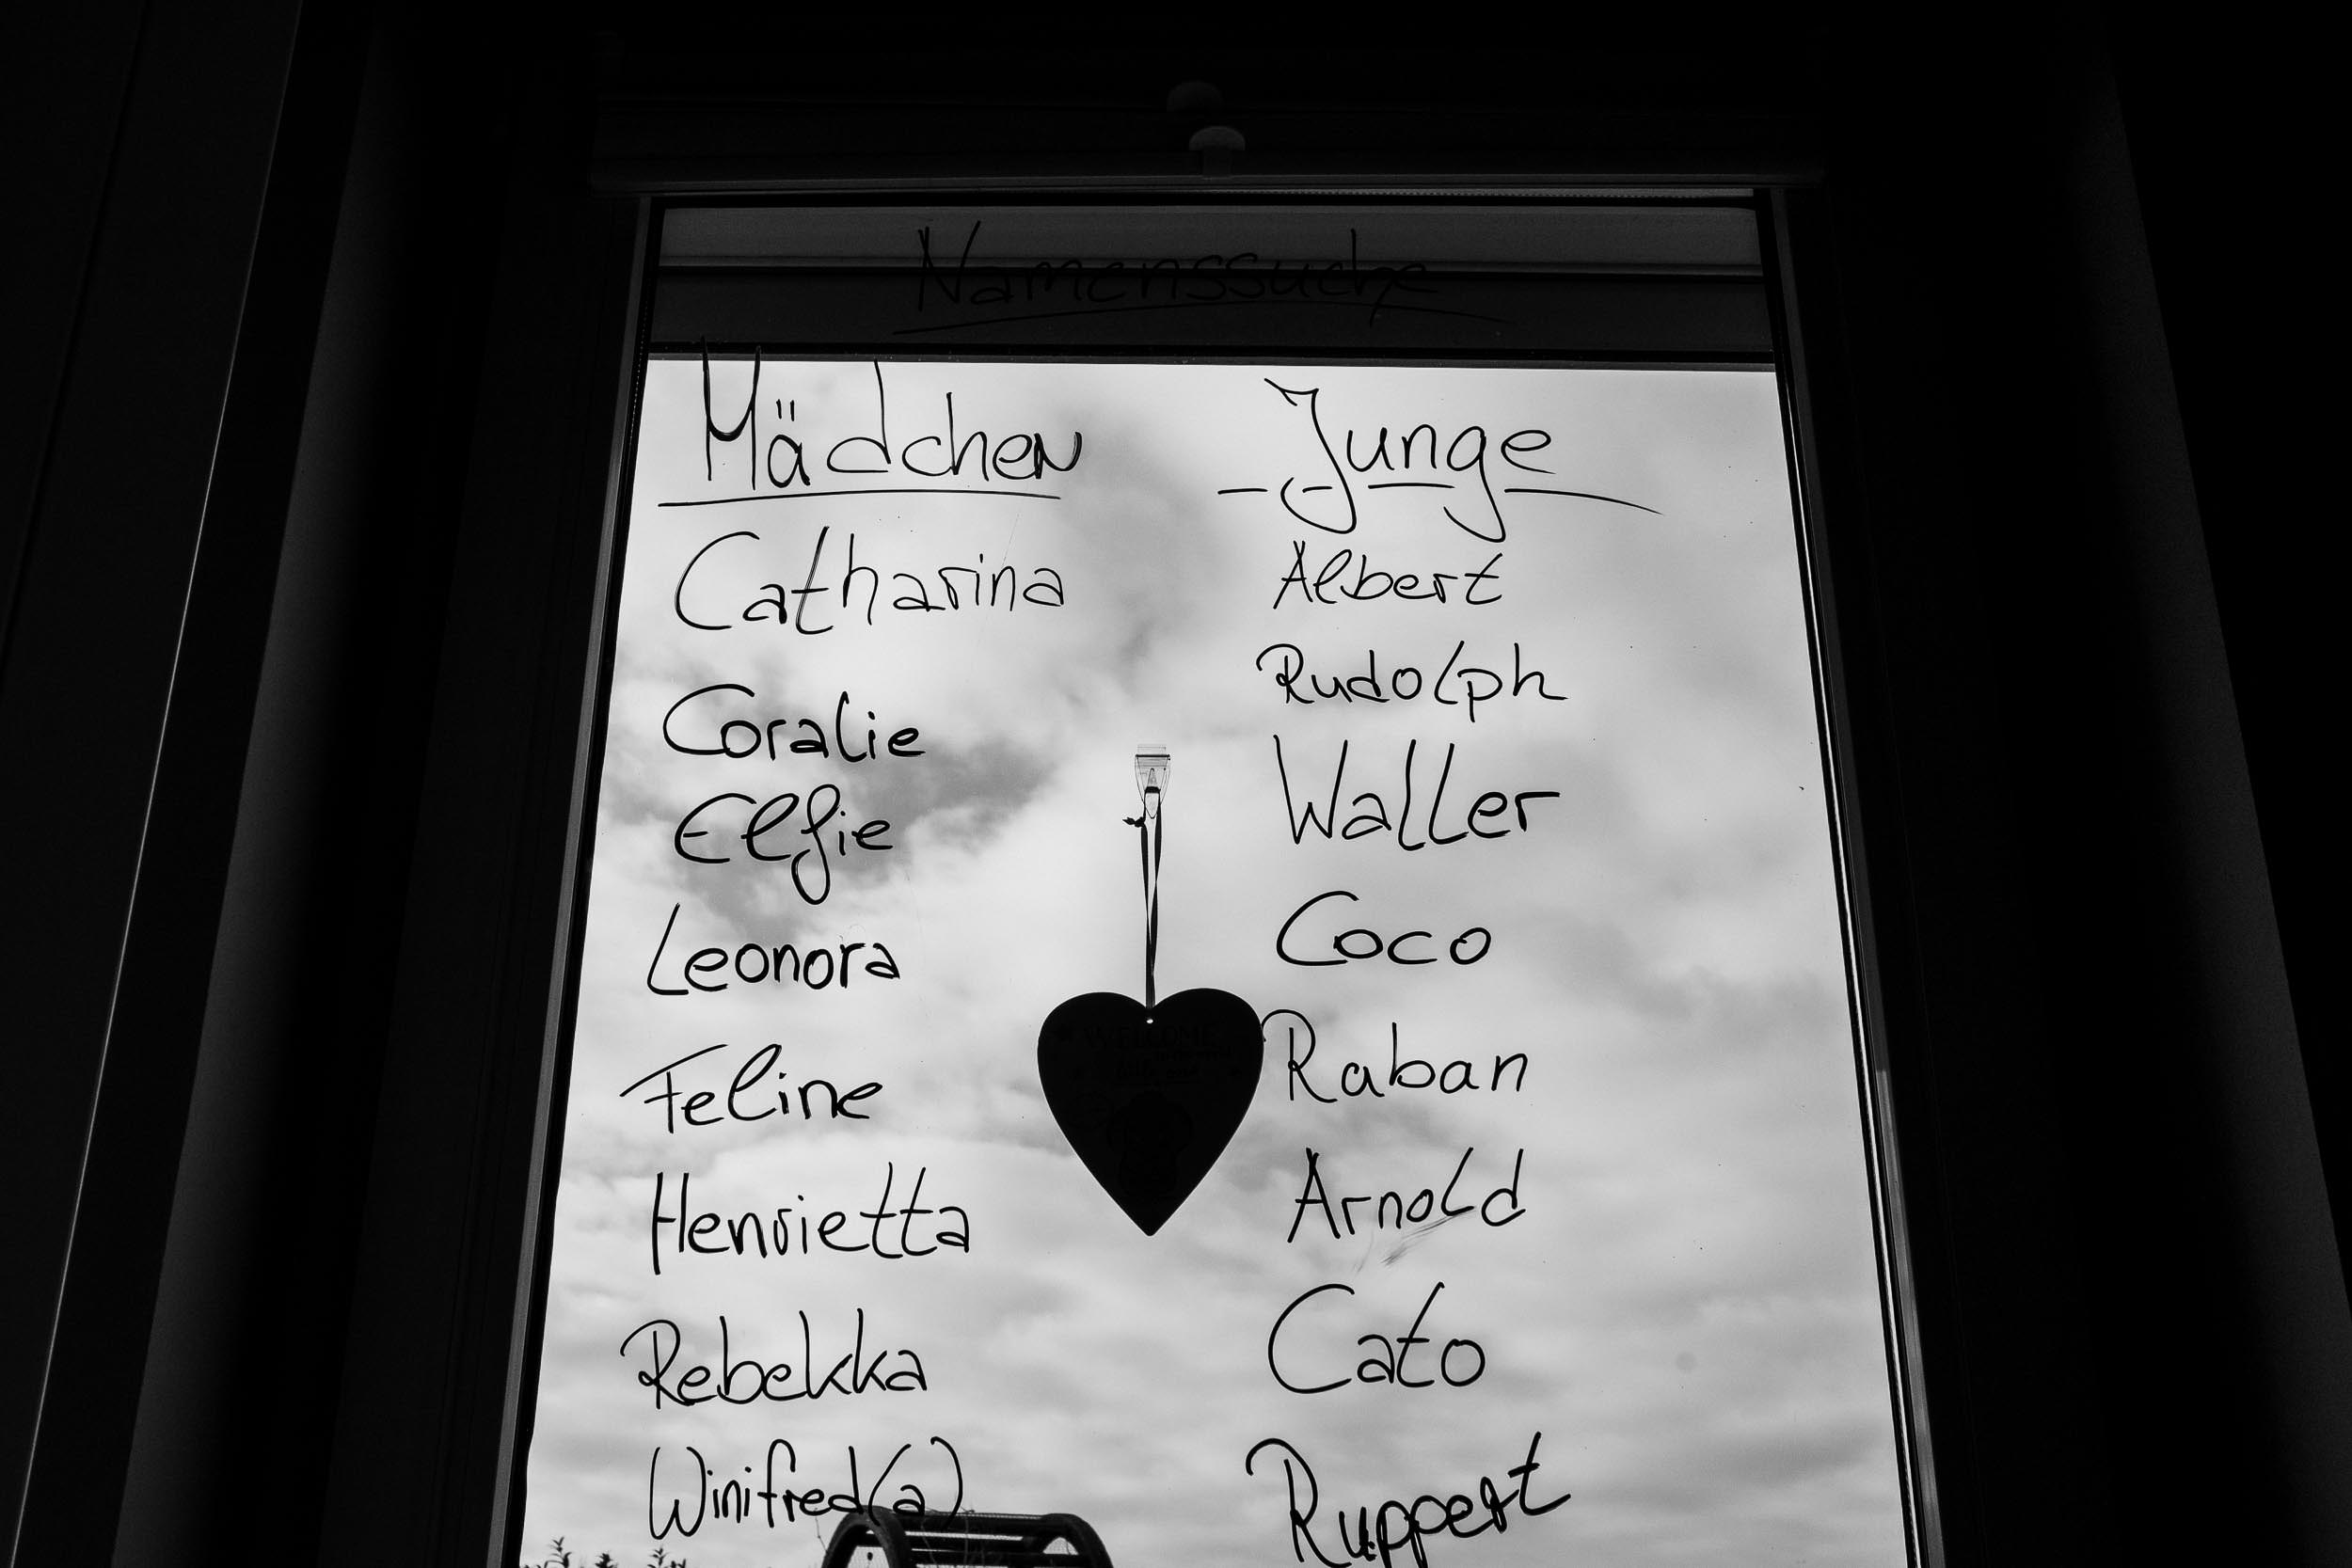 Namenssuche
Mädchen
Catharina
Coralie
Elfie
Leonora
Feline
Henrietta
Rebekka
Winifred(a)
Junge
Albert
Rudolph
Waller
Coco
Raban
Arnold
Cato
Ruppert
WELCOME